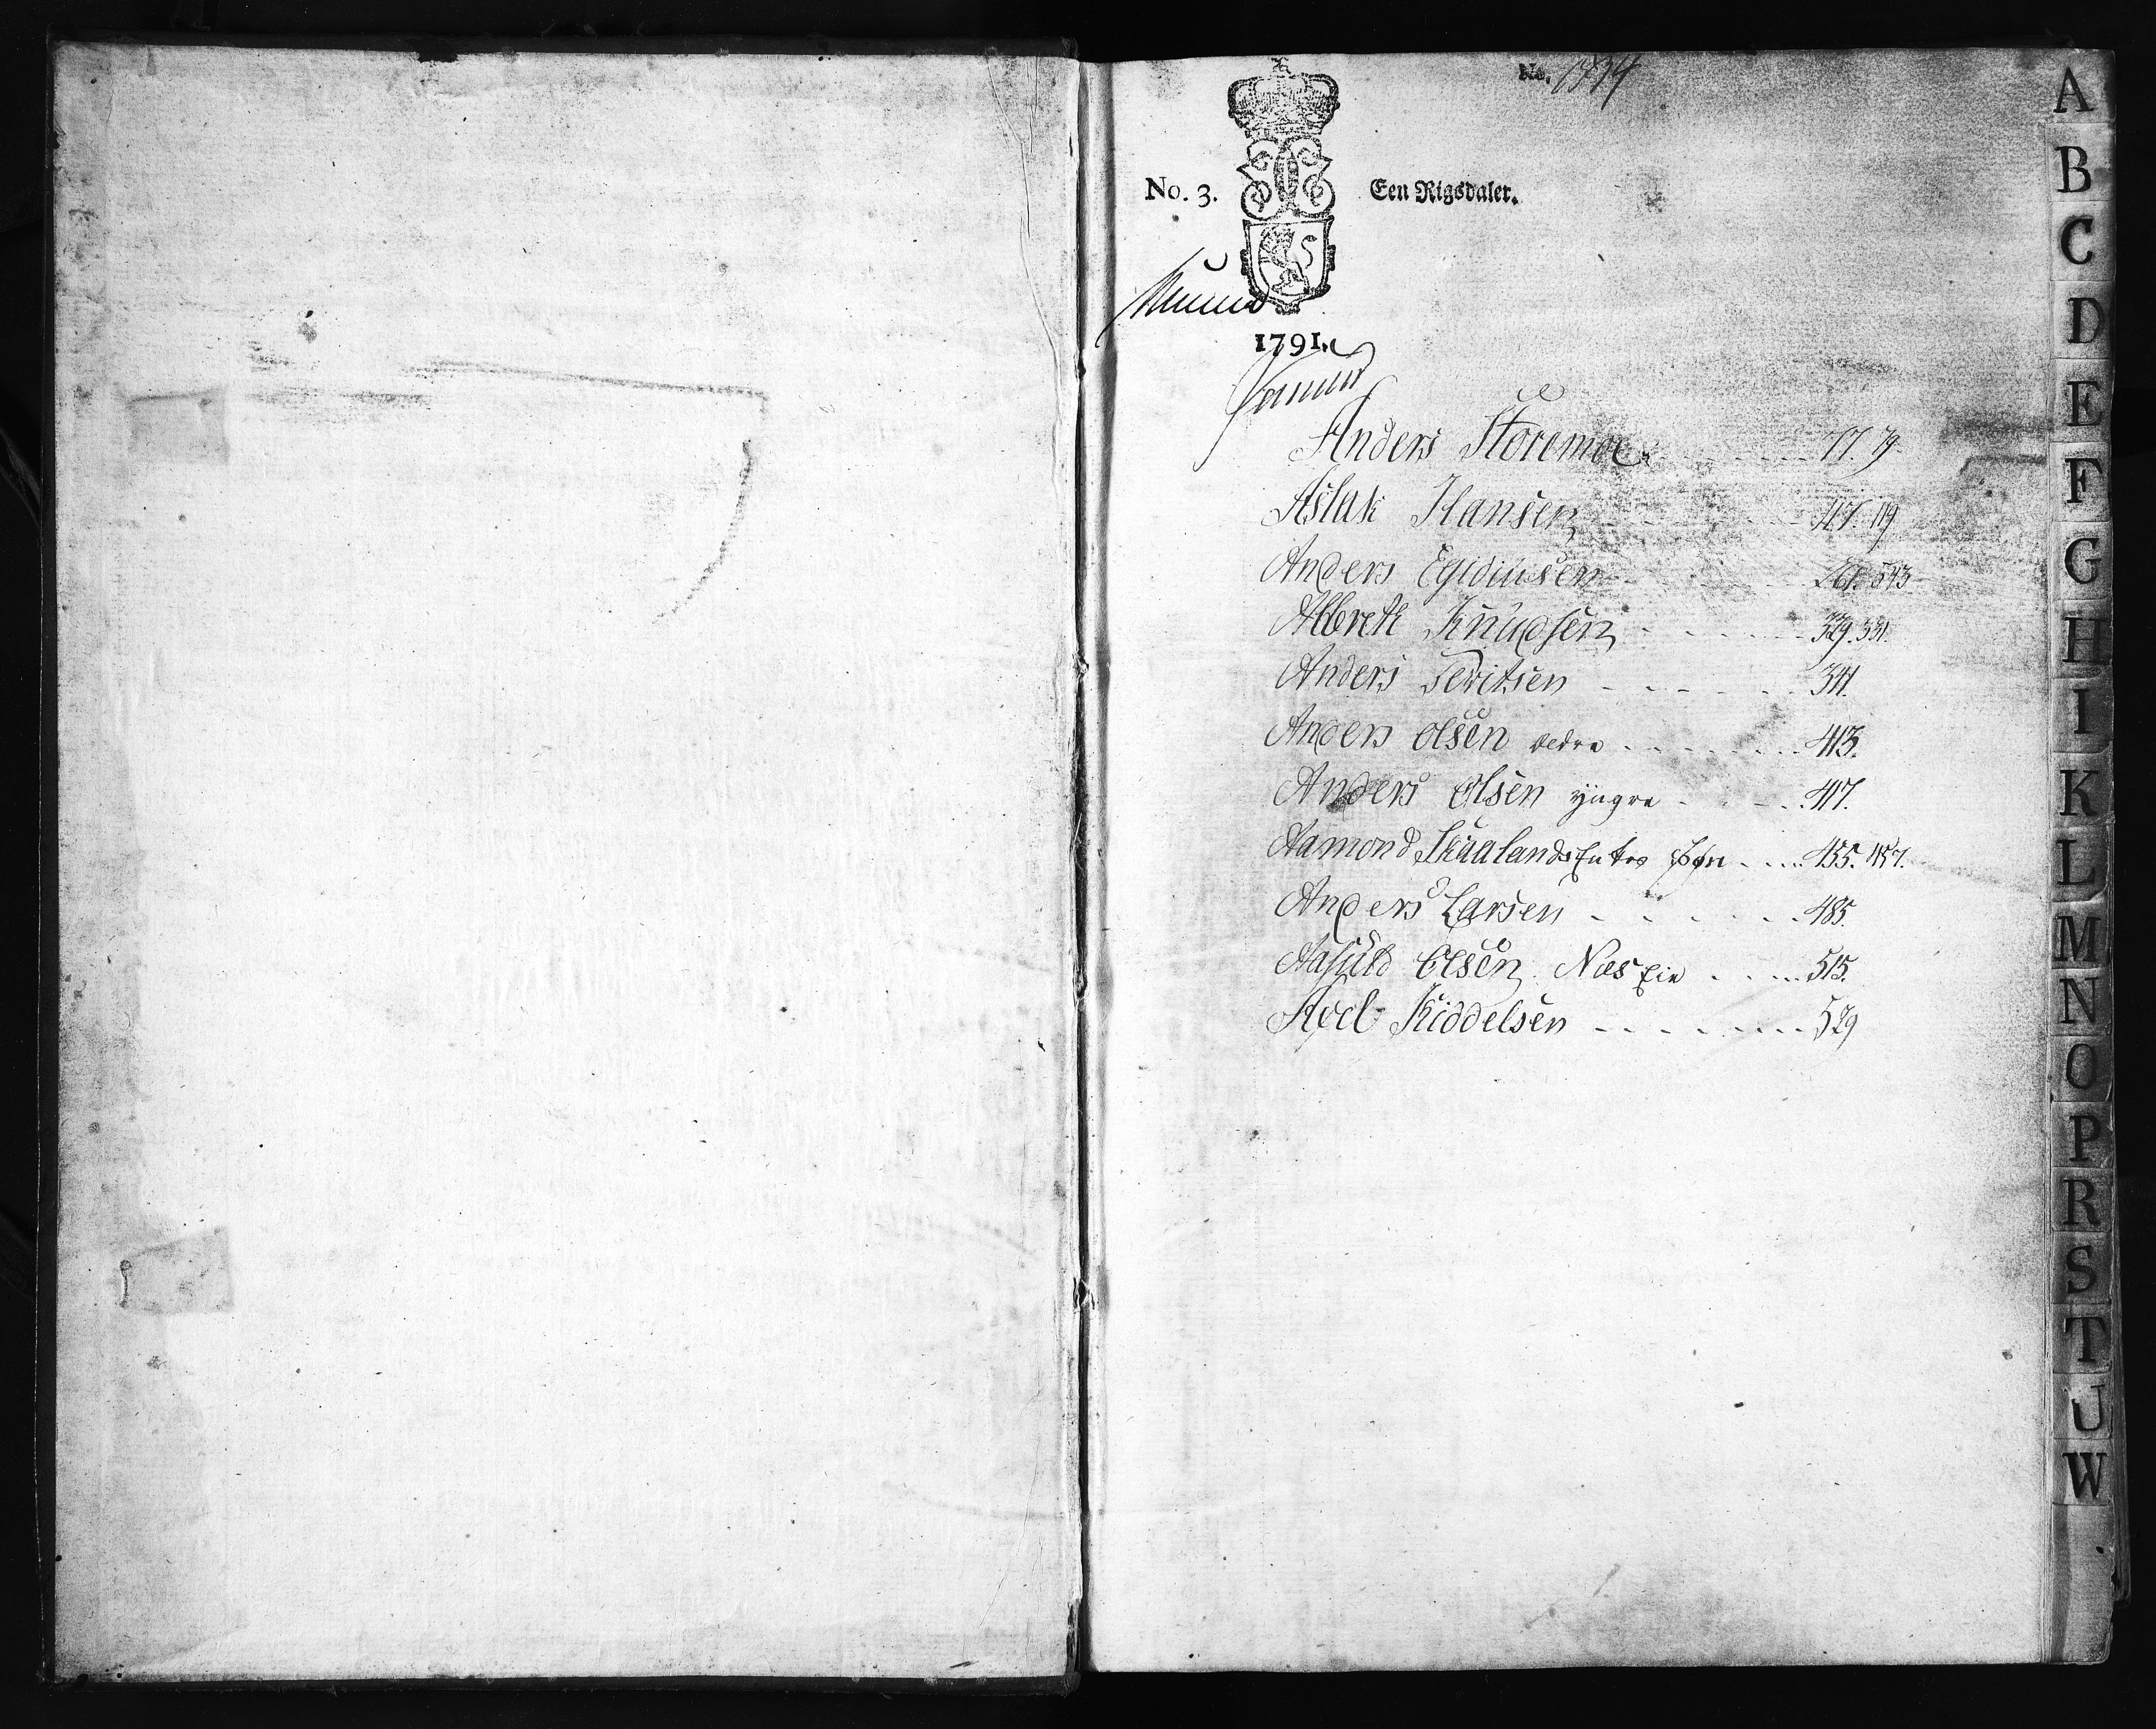 No. 1734
No. 3.
Een Rigsdaler.
1791.
Anders Storemoe 77. 79.
Aslak Hansen 117. 119
Anders Egidiusen 261. 543
Albret Knudsen 329. 331.
Anders Teritsen 341.
Anders Olsen ældre 413.
Anders Olsen yngre 417.
Aamond Skaalands 455. 457.
Anders Larsen 485.
Aasuld Olsen Næs 515.
Axel Kiddelsen 529
A
B
C
D
E
F
G
H
I
K
L
M
N
O
P
R
S
T
U
W